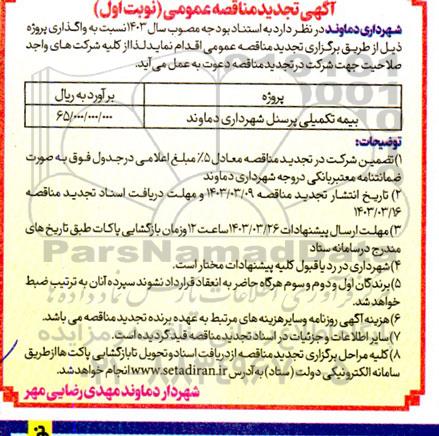 آگهی تجدید مناقصه عمومی (نوبت اول)
شهرداری دماوند در نظر دارد به استناد بودجه مصوب سال ۱۴۰۳ نسبت به واگذاری پروژه
ذیل از طریق برگزاری تجدید مناقصه عمومی اقدام نماید لذا از کلیه شرکت های واجد
صلاحیت جهت شرکت در تجدید مناقصه دعوت به عمل می آید.
پروژه برآورد به ریال
بیمه تکمیلی پرسنل شهرداری دماوند ۶۵/۰۰۰/۰۰۰/۰۰۰
توضیحات:
۱) تضمین شرکت در تجدید مناقصه معادل ۵٪ مبلغ اعلامی در جدول فوق به صورت
ضمانتنامه معتبر بانکی در وجه شهرداری دماوند
۲) تاریخ انتشار تجدید مناقصه ۱۴۰۳/۰۳/۰۹ و مهلت دریافت اسناد تجدید مناقصه
۱۴۰۳/۰۳/۱۶
۳) مهلت ارسال پیشنهادات ۱۴۰۳/۰۳/۲۶ ساعت ۱۲ و زمان بازگشایی پاکات طبق تاریخ های
مندرج در سامانه ستاد
۴) شهرداری در رد یا قبول کلیه پیشنهادات مختار است.
۵) برندگان اول و دوم و سوم هرگاه حاضر به انعقاد قرارداد نشوند سپرده آنان به ترتیب ضبط
خواهد شد.
۶) هزینه آگهی روزنامه و سایر هزینه های مرتبط به عهده برنده تجدید مناقصه می باشد.
۷) سایر اطلاعات و جزئیات در اسناد تجدید مناقصه قید گردیده است.
۸) کلیه مراحل برگزاری تجدید مناقصه از دریافت اسناد و تحویل تا بازگشایی پاکت ها از طریق
سامانه الکترونیکی دولت (ستاد) به آدرس www.setadiran.ir انجام خواهد شد.
شهردار دماوند مهدی رضایی مهر
ParsNamadData